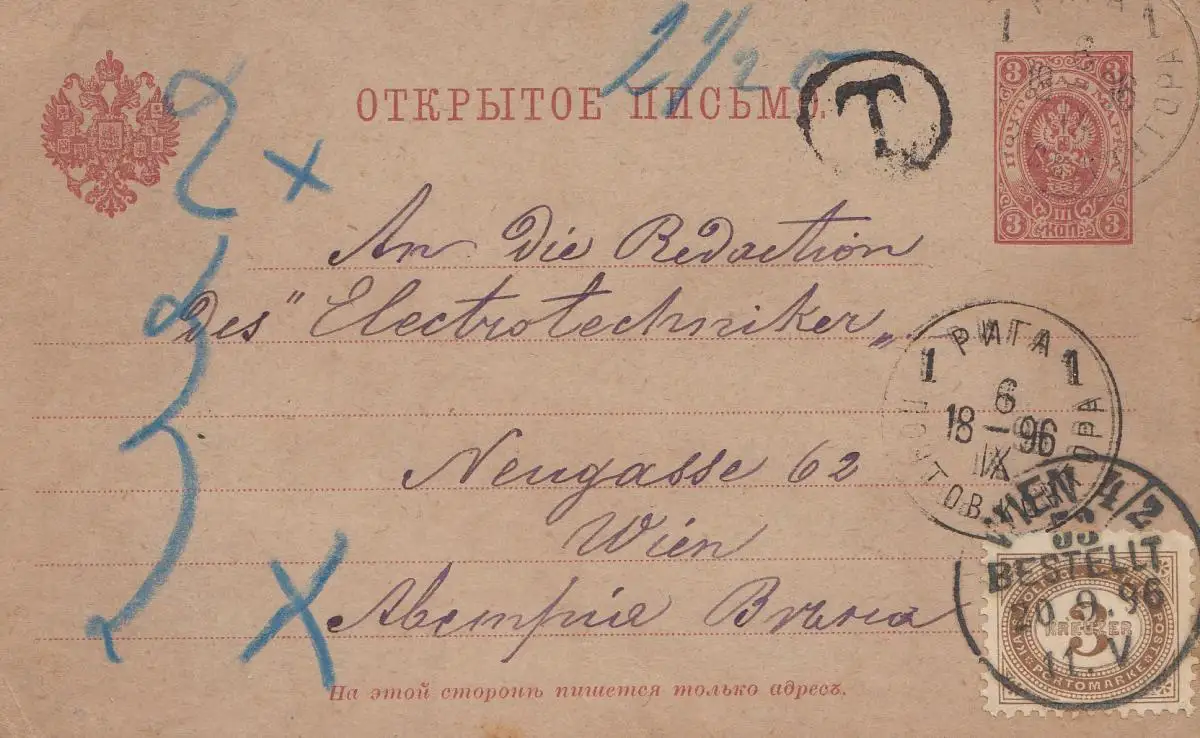 2 1/20
1 РИГА 1
ОТКРЫТОЕ ПИСЬМО.
T
3 3
ПОЧТОВАЯ МАРКА
3 III 3
КОП.
An die Redaction
des "Electrotechniker„
1 РИГА 1
6
18–96
IX
ПОЧТОВ. КОНТОРА
Neugasse 62
Wien
Австрія Вѣна
WIEN 4/2
53
BESTELLT
20.9.96
11.V
3
KREUZER
PORTOMARKE
На этой сторонѣ пишется только адресъ.